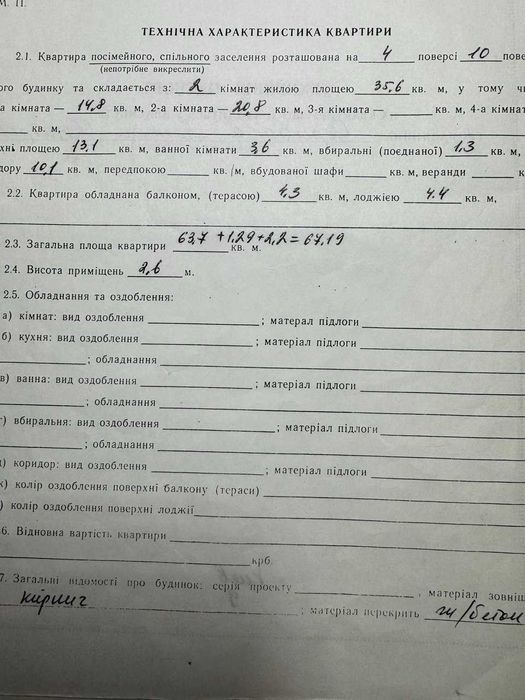 М. П.
ТЕХНІЧНА ХАРАКТЕРИСТИКА КВАРТИРИ
2.1. Квартира посімейного, спільного заселення розташована на 4 поверсі 10 пове
(непотрібне викреслити)
ого будинку та складається з: 2 кімнат жилою площею 35,6 кв. м, у тому чи
а кімната — 14,8 кв. м, 2-а кімната — 20,8 кв. м, 3-я кімната — кв. м, 4-а кімнат
кв. м,
хні площею 13,1 кв. м, ванної кімнати 3,6 кв. м, вбиральні (поєднаної) 1,3 кв. м,
дору 10,1 кв. м, передпокою кв. м, вбудованої шафи кв. м, веранди к
2.2. Квартира обладнана балконом, (терасою) 4.3 кв. м, лоджією 4.4 кв. м,
2.3. Загальна площа квартири 63,7 + 1,29 + 2,2 = 67,19 кв. м.
2.4. Висота приміщень 2,6 м.
2.5. Обладнання та оздоблення:
а) кімнат: вид оздоблення ; матерал підлоги
б) кухня: вид оздоблення ; матеріал підлоги
; обладнання
в) ванна: вид оздоблення ; матеріал підлоги
; обладнання
г) вбиральня: вид оздоблення ; матеріал підлоги
; обладнання
) коридор: вид оздоблення ; матеріал підлоги
) колір оздоблення поверхні балкону (тераси)
) колір оздоблення поверхні лоджії
6. Відновна вартість квартири
крб.
7. Загальні відомості про будинок: серія проекту , матеріал зовніш
кирпич ; матеріал перекрить ж/бетон